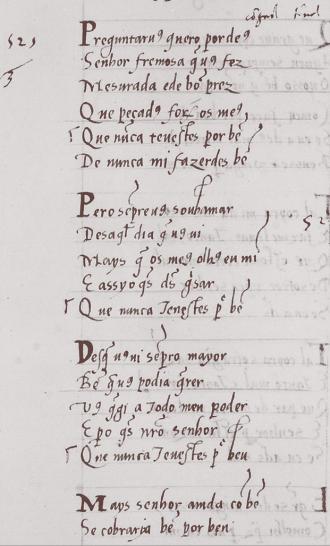 529
Preguntarus quero por des
Senhor fremosa q̃ us fez
Mesurada e de bõ prez
Que pecads forõ os mes
Que nũca teuestes por bẽ
De nunca mi fazerdes bẽ
Pero sẽpre us soub amar
Des aql dia q̃ us ui
Mays q̃ os mes olhs en mi
E assy o qs ds g̃sar
Que nunca Teuestes p bẽ
Des q̃ us ui sẽpr o mayor
Bẽ q̃ us podia q̃rer
Us q̃gi a Todo meu poder
E po qs nr̃o senhor
Que nunca Teuestes p beu
Mays senhor amda co bẽ
Se cobraria bẽ por ben